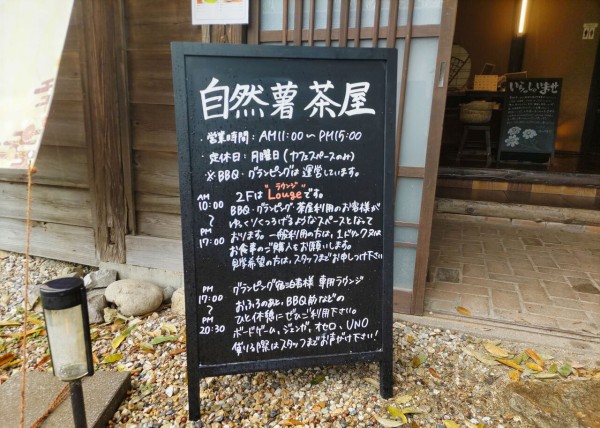 自然薯茶屋
・営業時間：AM11:00～PM15:00
・定休日：月曜日(カフェスペースのみ)
※BBQ・グランピングは運営しています。
AM 10:00 ～ PM 17:00
2Fは"Louge"です。
ラウンジ
BBQ・グランピング・茶屋利用のお客様が
ゆっくりくつろげるようなスペースとなって
おります。一般利用の方は、1ドリンク又は
お食事のご購入をお願いします。
見学希望の方は、スタッフまでお申しつけ下さい
PM 17:00 ～ PM 20:30
グランピング宿泊者様 専用ラウンジ
おふろのあと、BBQ前などの
ひと休憩にぜひご利用下さい。
ボードゲーム、ジェンガ、オセロ、UNO
借りる際はスタッフまでお声がけ下さい!
いらっしゃいませ